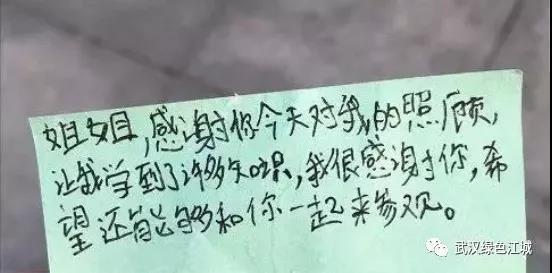 姐姐,感谢你今天对我的照顾,
让我学到了许多知识,我很感谢你,希
望还能够和你一起来参观。
武汉绿色江城